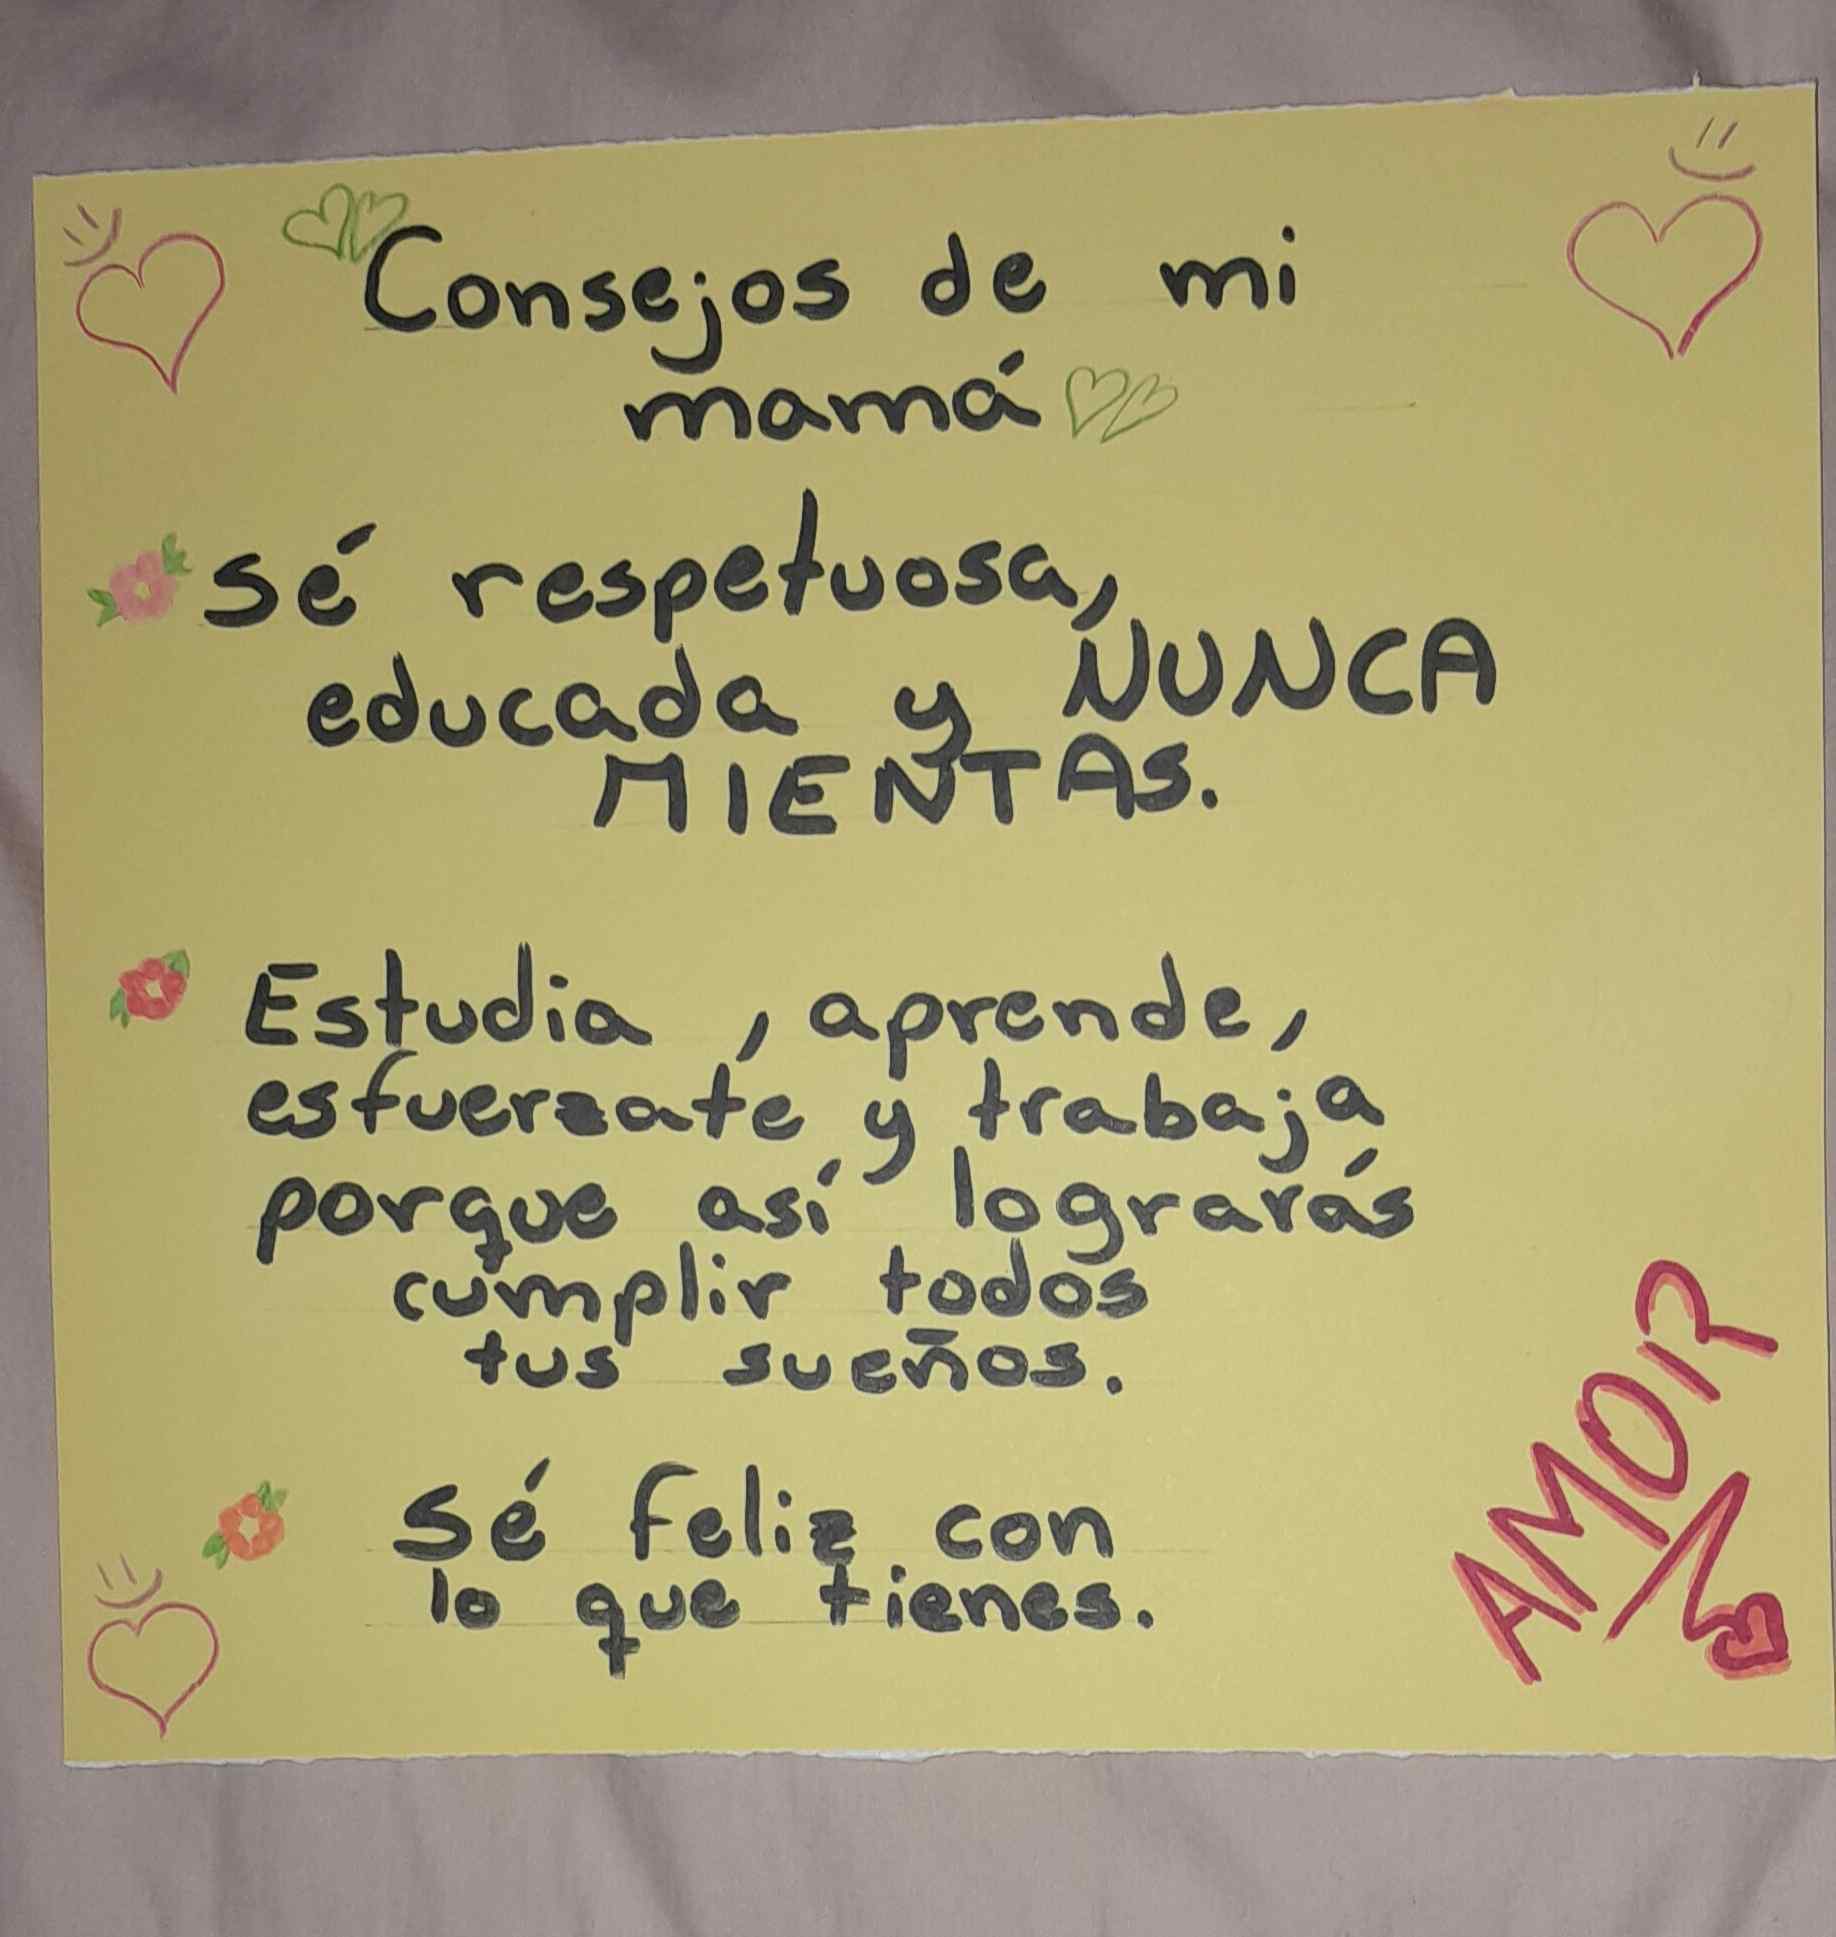 Consejos de mi
mamá
Sé respetuosa,
educada y NUNCA
MIENTAS.
Estudia, aprende,
esfuerzate y trabaja
porque así lograrás
cumplir todos
tus sueños.
Sé feliz con
lo que tienes.
AMOR